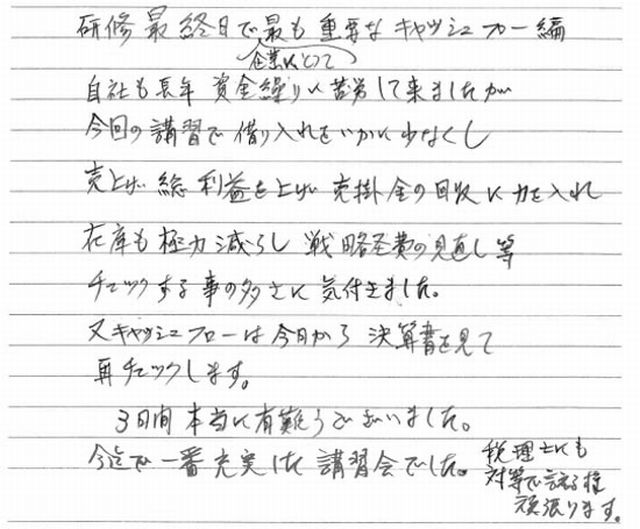 研修最終日で最も重要なキャッシュフロー編
企業にとって
自社も長年資金繰りに苦労して来ましたが
今回の講習で借り入れをいかに少なくし
売上げ総利益を上げ売掛金の回収に力を入れ
在庫も極力減らし戦略経費の見直し等
チェックする事の多さに気付きました。
又キャッシュフローは今日から決算書を見て
再チェックします。
3日間本当に有難うございました。
今迄で一番充実した講習会でした。
税理士にも
対等で言える様
頑張ります。